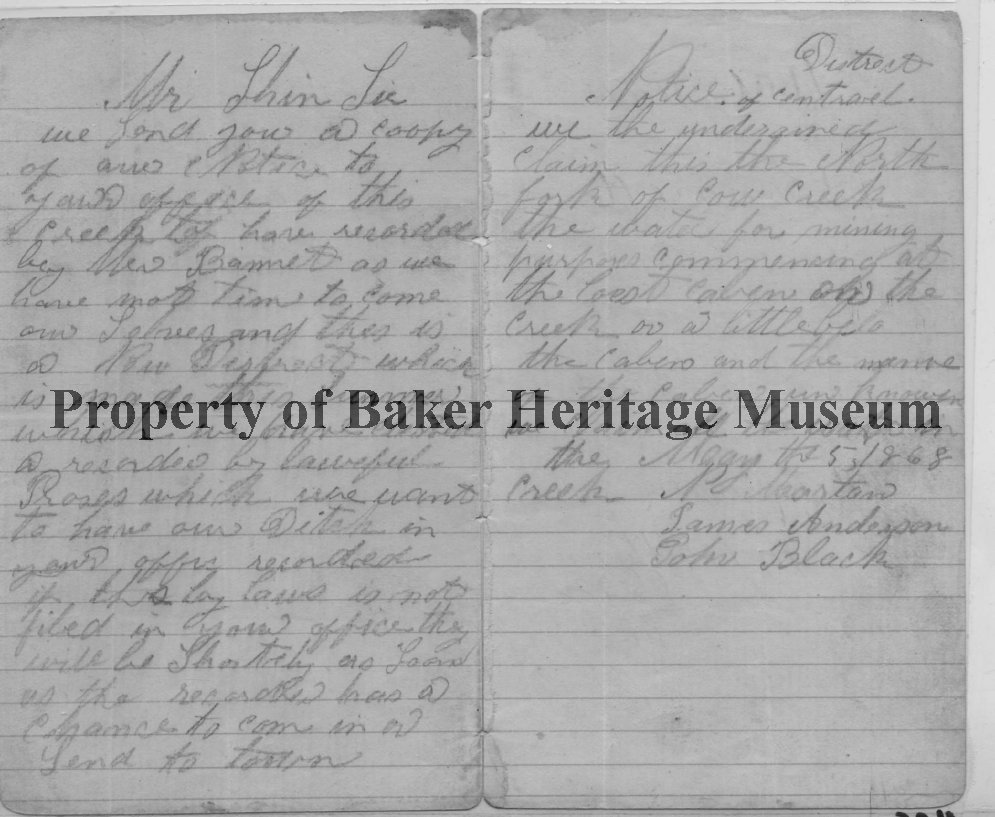 Mr Shin Sir
we Send your a coopy
of our Notice to
your office of this
Creek to have recorded
by New Bannet as we
have not tim to come
our Selves and this is
a New Destrect which
is made this
which we have
a recorder by lawful
Proses which we want
to have our Ditch in
your offic recorded
if this by laws is not
filed in your office they
will be Shortely as Soon
as the recorder has a
Chance to com in or
Send to town
Destrect
Notice of centravel.
we the undersined
claim this the North
fork of Cow Creek
the water for mining
purposes commencing at
the Coest caben on the
Creek or a little belo
the caben and the
the Magy the 5 1868
Creek N Moartan
James Anderson
John Black
Property of Baker Heritage Museum